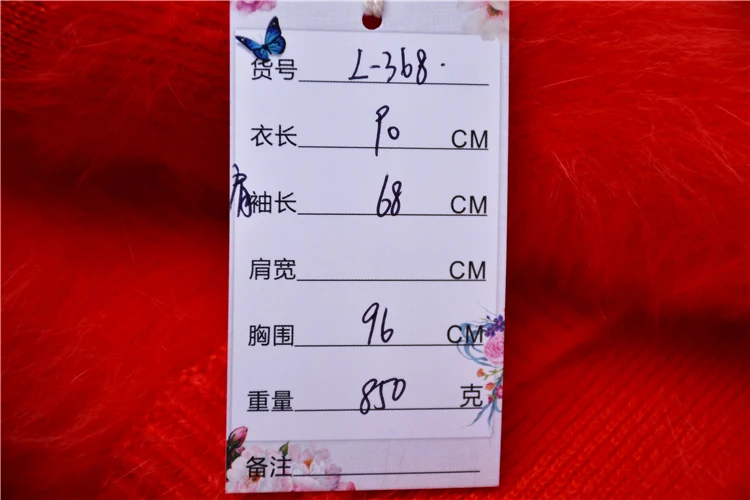 货号 L-368.
衣长 90 CM
肩袖长 68 CM
肩宽 CM
胸围 96 CM
重量 850 克
备注